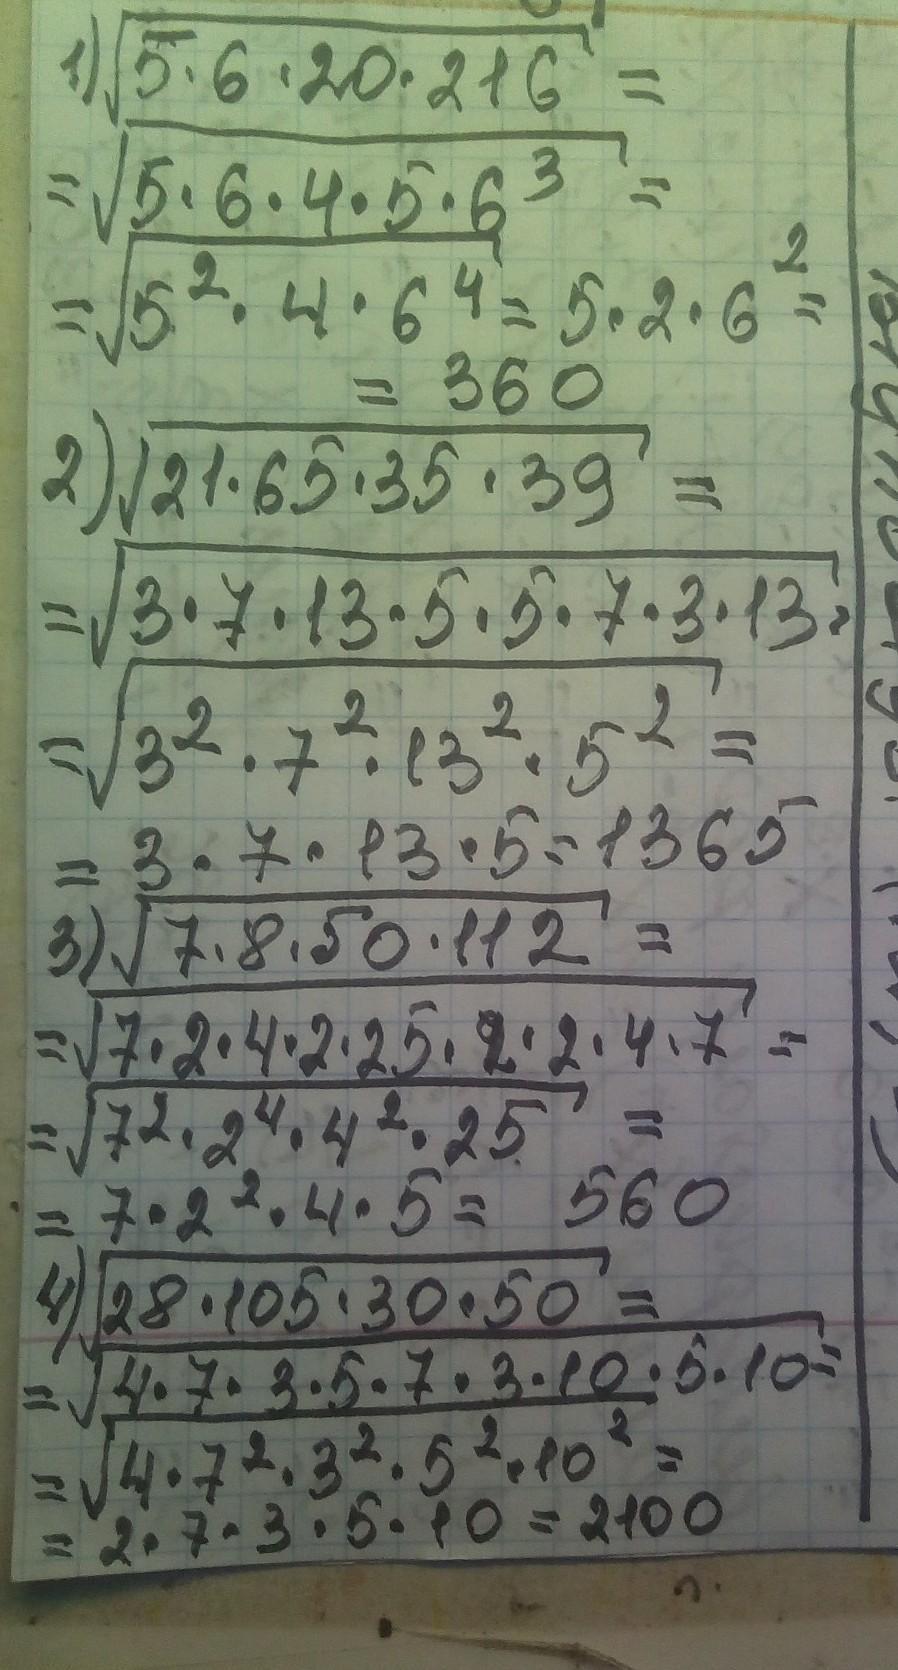 1) √5·6·20·216 =
= √5·6·4·5·6³ =
= √5²·4·6⁴ = 5·2·6² =
= 360
2) √21·65·35·39 =
= √3·7·13·5·5·7·3·13 =
= √3²·7²·13²·5² =
= 3·7·13·5 = 1365
3) √7·8·50·112 =
= √7·2·4·2·25·2·2·4·7 =
= √7²·2⁴·4²·25 =
= 7·2²·4·5 = 560
4) √28·105·30·50 =
= √4·7·3·5·7·3·10·5·10 =
= √4·7²·3²·5²·10² =
= 2·7·3·5·10 = 2100